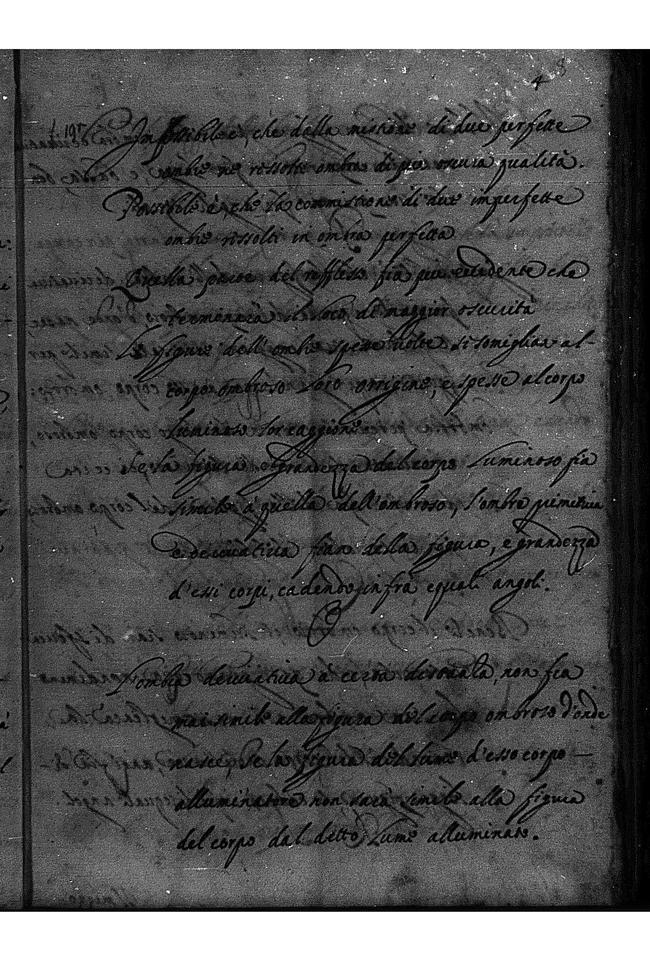 f. 197
Impossibile è, che dalla mistione di due perfette
ombre ne ressolti ombra di più oscura qualità.
Possibile è, che la commistione di due imperfette
ombre rissolti in ombra perfetta
Quella parte del reflesso fia più evidente che
termenarà in loco di maggior oscurità
Le figure dell'ombre spesse volte si somiglian al-
corpo ombroso loro origgine, e spesse al corpo
luminoso lor caggione
Se la figura e grandezza del corpo Luminoso fia
simile à quella dell'ombroso, l'ombra primitiva
è derivativa fian della figura, e grandezza
d'essi corpi, cadendo infrà equali angoli.
L'ombra derivativa à certa distantia, non fia
mai simile alla figura del corpo ombroso d'onde
nasce, se la figura del lume d'esso corpo —
alluminatore non sarà simile alla figura
del corpo dal detto Lume alluminato.